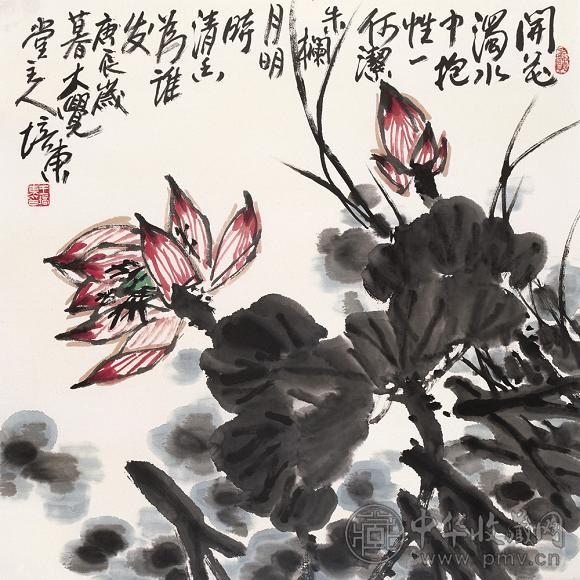 開花
濁水
中抱
性一
何潔
朱欄
月明
時
清香
為誰
發
庚辰歲
暮大覺
堂主人
培東
中华收藏网
www.pmv.cn